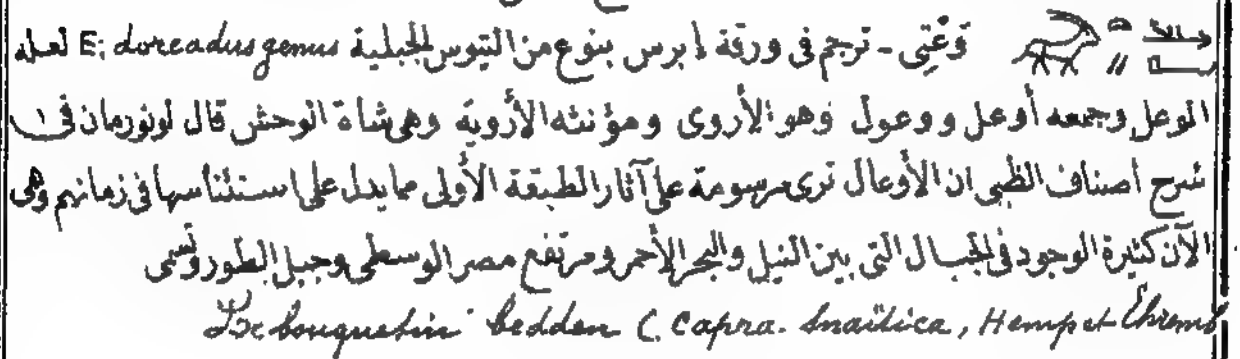 توعتى - ترجم فى ورقة إبرس بنوع من التيوس الجبلية E; dorcadus genus لعله
الوعل وجمعه أوعل ووعول وهو الأروى ومؤنثه الأروية وهى شاة الوحش قال لونورمان فى
شرح أصناف الظبى ان الأوعال ترى مرسومة على آثار الطبقة الأولى مما يدل على استئناسها فى زمانهم وهى
الآن كثيرة الوجود فى الجبال التى بين النيل والبحر الأحمر ومرتفع مصر الوسطى وجبل الطور وتسمى
Le bouquetin bedden (Capra. Snaïtica, Hemp et Ehremb